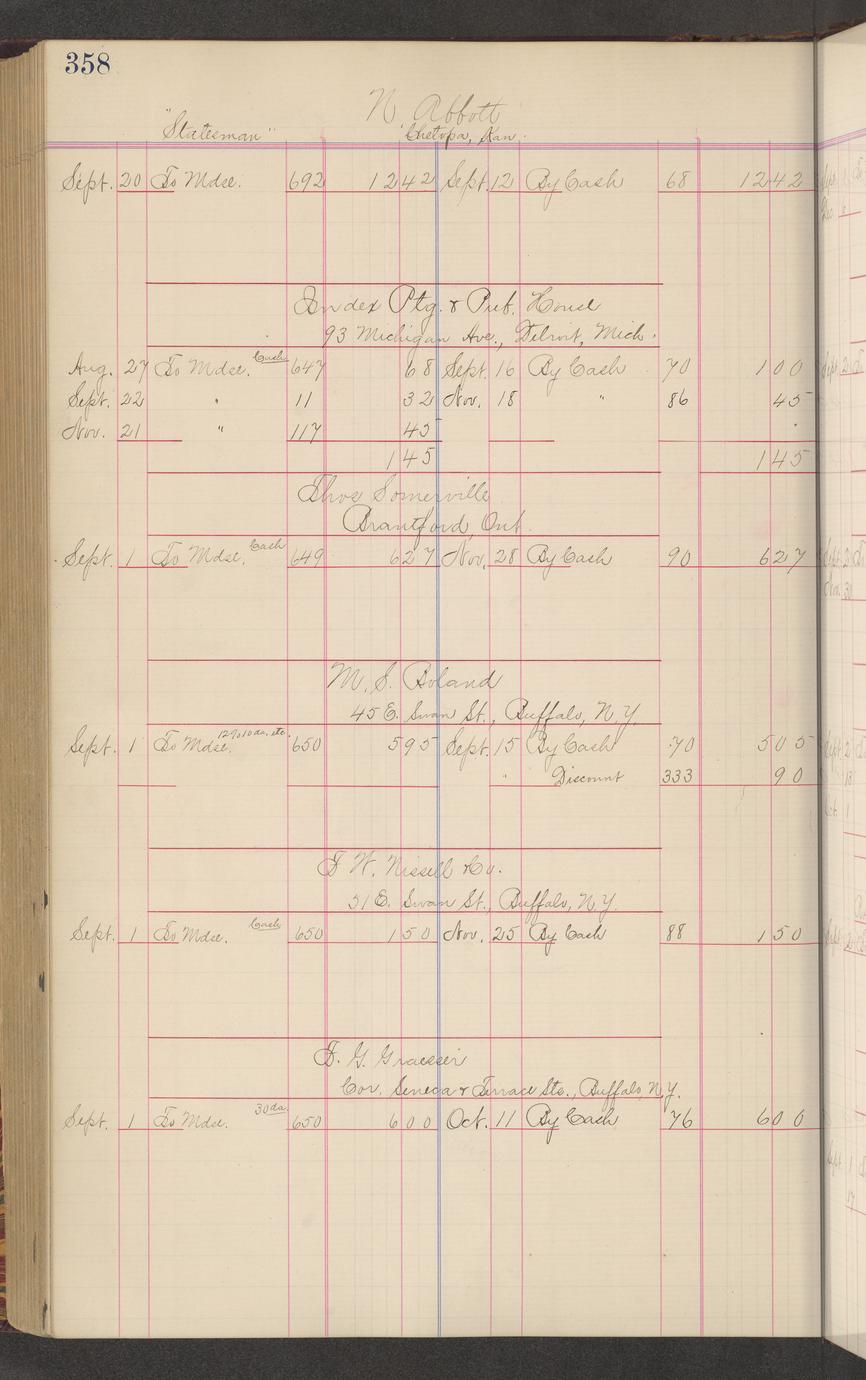 358
N. Abbott
"Statesman" Chetopa, Kan.
Sept. 20 To Mdse. 692 12 42 Sept. 12 By Cash 68 12 42
Index Ptg. & Pub. House
93 Michigan Ave., Detroit, Mich.
Aug. 27 To Mdse. Cash 647 68 Sept. 16 By Cash 70 1 00
Sept. 22 " 11 32 Nov. 18 " 86 45
Nov. 21 " 117 45
1 45 1 45
Thos Somerville
Brantford, Ont.
Sept. 1 To Mdse. Cash 649 6 27 Nov. 28 By Cash 90 6 27
M. S. Boland
45 E. Swan St., Buffalo, N.Y.
Sept. 1 To Mdse. 12% 10 da. etc. 650 5 95 Sept. 15 By Cash 70 5 05
" Discount 333 90
F. W. Nissell & Co.
51 E. Swan St., Buffalo, N.Y.
Sept. 1 To Mdse. Cash 650 1 50 Nov. 25 By Cash 88 1 50
F. G. Graesser
Cor. Seneca & Terrace Sts., Buffalo, N.Y.
Sept. 1 To Mdse. 30 da. 650 6 00 Oct. 11 By Cash 76 6 00